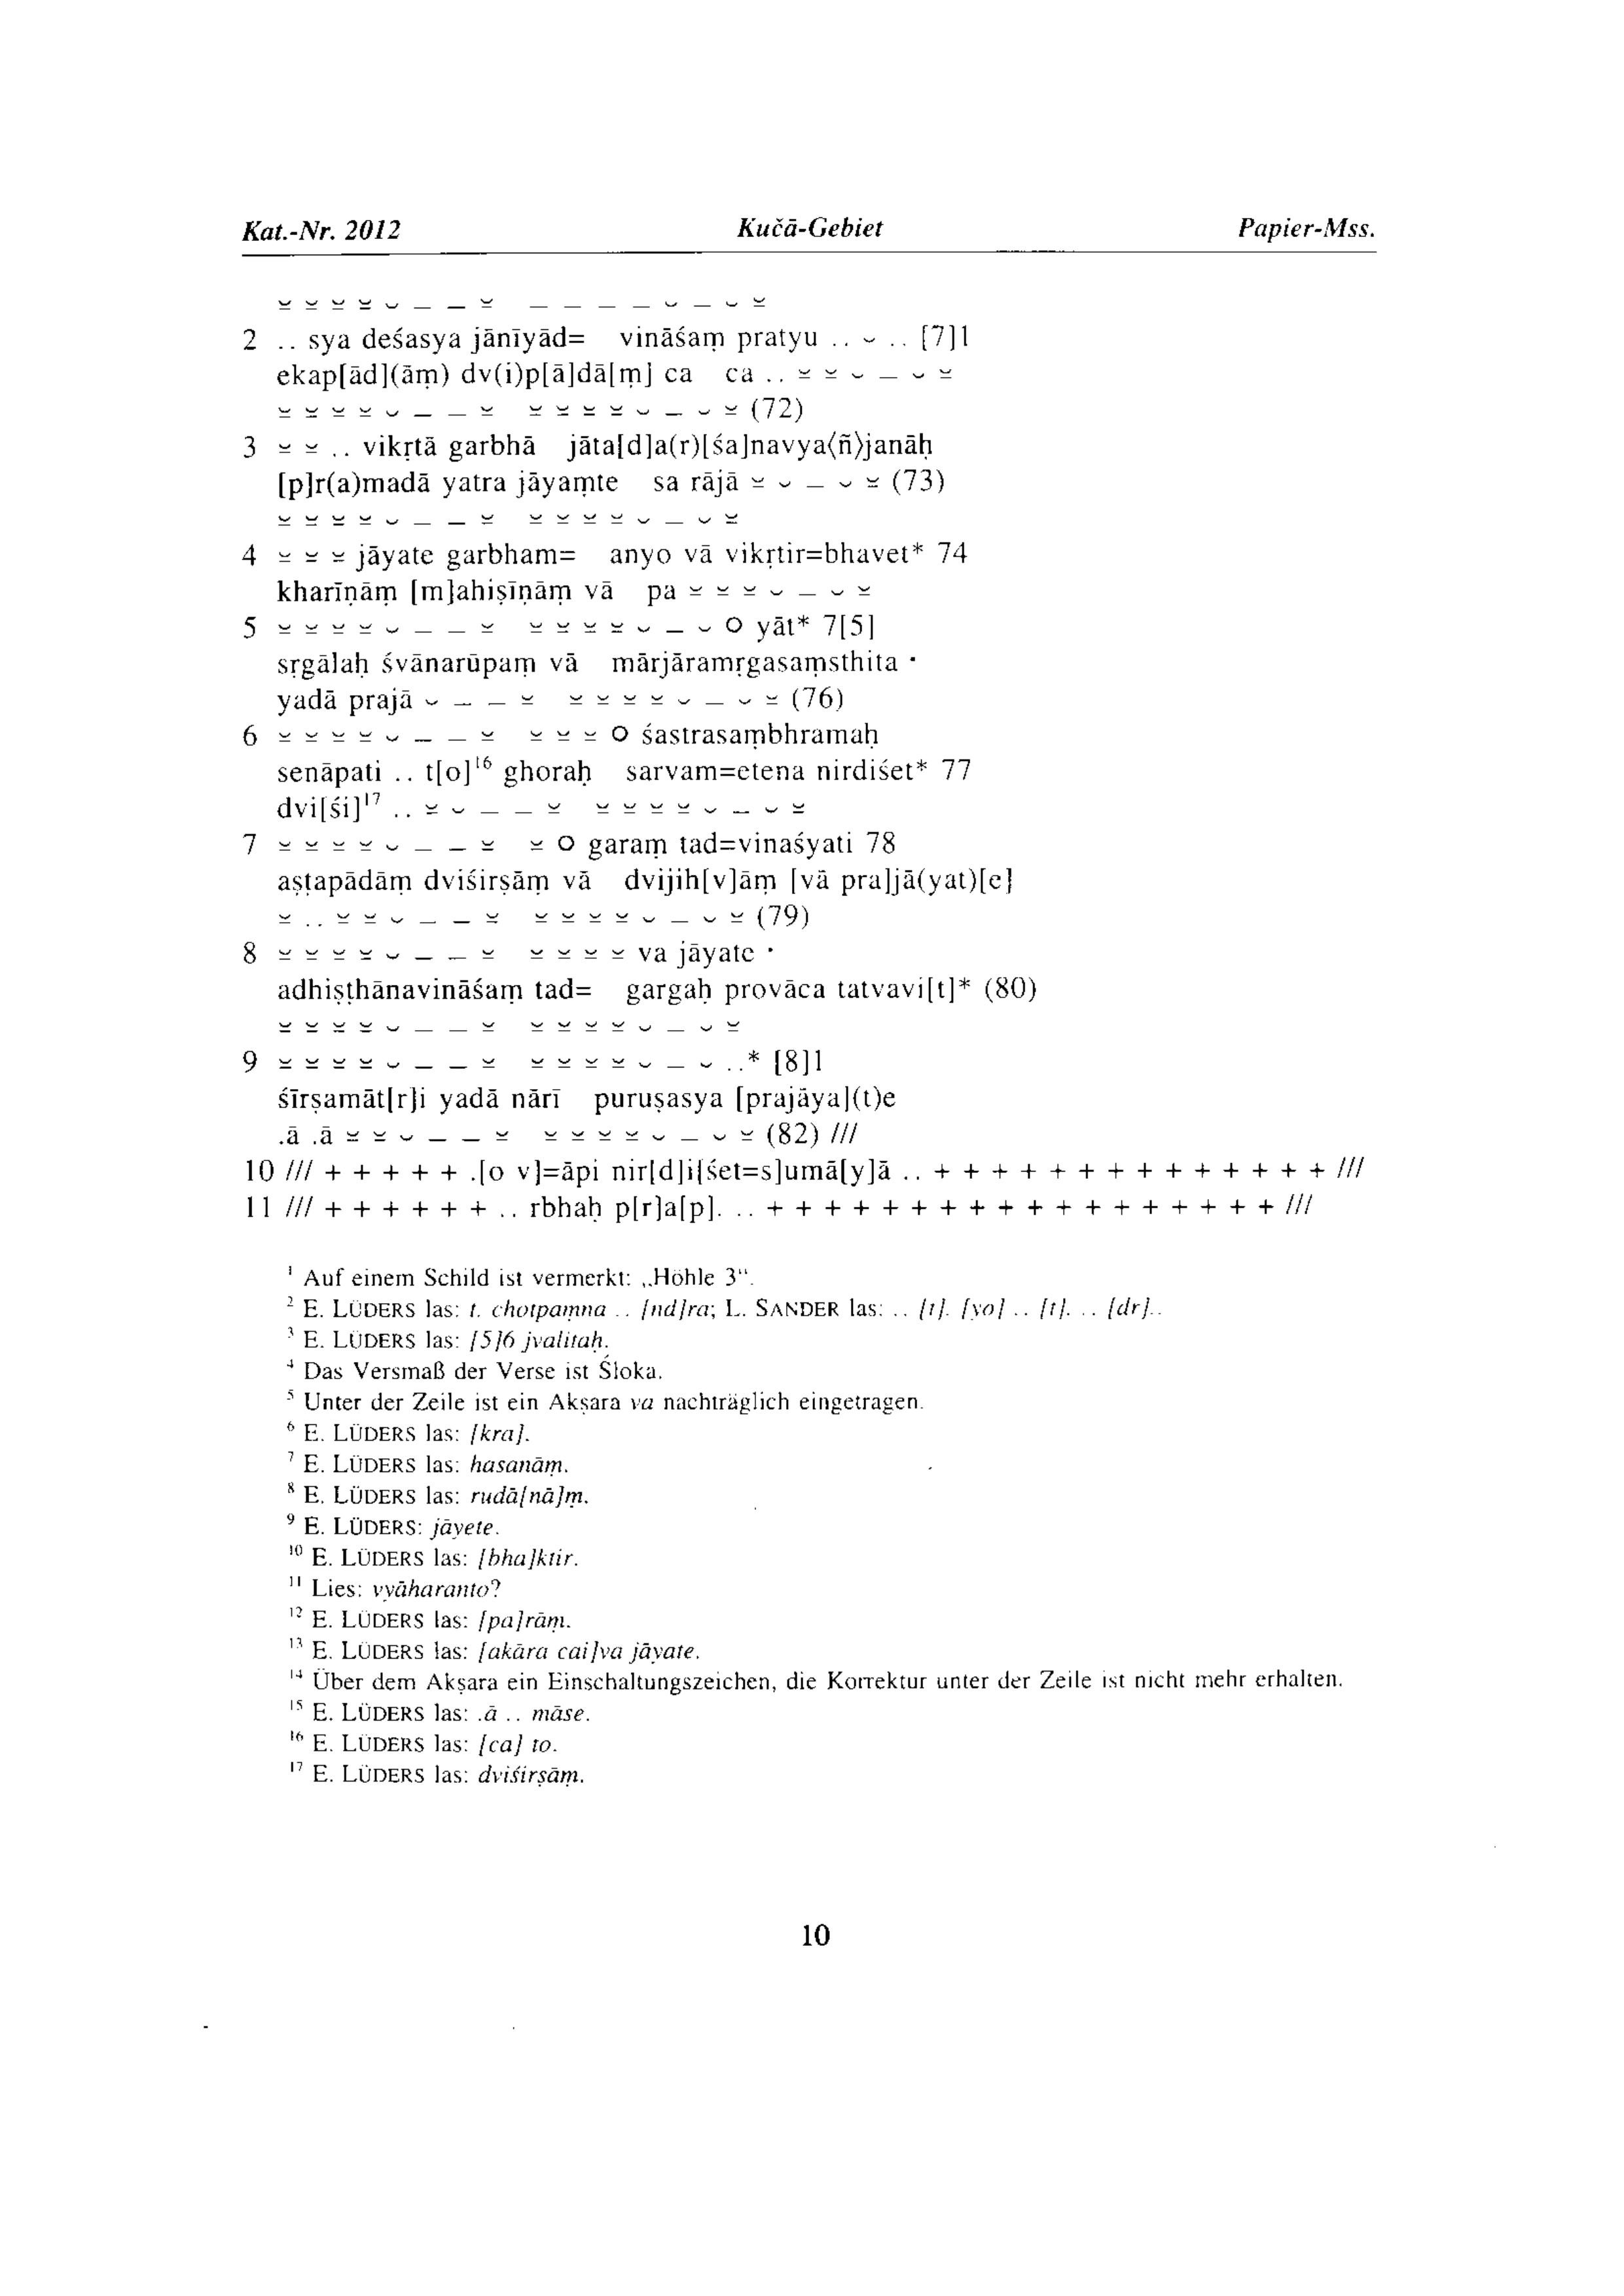 Kat.-Nr. 2012 Kučā-Gebiet Papier-Mss.
⏓ ⏓ ⏓ ⏓ ⏑ — — ⏓ — — — — ⏑ — ⏑ ⏓
2 .. sya deśasya jānīyād= vināśaṃ pratyu .. ⏑ .. [7]1
ekap[ād](āṃ) dv(i)p[ā]dā[ṃ] ca ca .. ⏓ ⏓ ⏑ — ⏑ ⏓
⏓ ⏓ ⏓ ⏓ ⏑ — — ⏓ ⏓ ⏓ ⏓ ⏓ ⏑ — ⏑ ⏓ (72)
3 ⏓ ⏓ .. vikṛtā garbhā jāta[d]a(r)[śa]navya⟨ñ⟩janāḥ
[p]r(a)madā yatra jāyaṃte sa rājā ⏓ ⏑ — ⏑ ⏓ (73)
⏓ ⏓ ⏓ ⏓ ⏑ — — ⏓ ⏓ ⏓ ⏓ ⏓ ⏑ — ⏑ ⏓
4 ⏓ ⏓ ⏓ jāyate garbham= anyo vā vikṛtir=bhavet* 74
kharīṇāṃ [m]ahiṣīṇāṃ vā pa ⏓ ⏓ ⏓ ⏑ — ⏑ ⏓
5 ⏓ ⏓ ⏓ ⏓ ⏑ — — ⏓ ⏓ ⏓ ⏓ ⏓ ⏑ — ⏑ O yāt* 7[5]
sṛgālaḥ śvānarūpaṃ vā mārjāramṛgasaṃsthita ·
yadā prajā ⏑ — — ⏓ ⏓ ⏓ ⏓ ⏓ ⏑ — ⏑ ⏓ (76)
6 ⏓ ⏓ ⏓ ⏓ ⏑ — — ⏓ ⏓ ⏓ ⏓ O śastrasaṃbhramaḥ
senāpati .. t[o]¹⁶ ghoraḥ sarvam=etena nirdiśet* 77
dvi[śi]¹⁷ .. ⏓ ⏑ — — ⏓ ⏓ ⏓ ⏓ ⏓ ⏑ — ⏑ ⏓
7 ⏓ ⏓ ⏓ ⏓ ⏑ — — ⏓ ⏓ O garaṃ tad=vinaśyati 78
aṣṭapādāṃ dviśirṣāṃ vā dvijih[v]āṃ [vā pra]jā(yat)[e]
⏓ .. ⏓ ⏓ ⏑ — — ⏓ ⏓ ⏓ ⏓ ⏓ ⏑ — ⏑ ⏓ (79)
8 ⏓ ⏓ ⏓ ⏓ ⏑ — — ⏓ ⏓ ⏓ ⏓ ⏓ va jāyate ·
adhiṣṭhānavināśaṃ tad= gargaḥ provāca tatvavi[t]* (80)
⏓ ⏓ ⏓ ⏓ ⏑ — — ⏓ ⏓ ⏓ ⏓ ⏓ ⏑ — ⏑ ⏓
9 ⏓ ⏓ ⏓ ⏓ ⏑ — — ⏓ ⏓ ⏓ ⏓ ⏓ ⏑ — ⏑ ..* [8]1
śīrṣamāt[r]i yadā nārī puruṣasya [prajāya](t)e
.ā .ā ⏓ ⏓ ⏑ — — ⏓ ⏓ ⏓ ⏓ ⏓ ⏑ — ⏑ ⏓ (82) ///
10 /// + + + + + .[o v]=āpi nir[d]i[śet=s]umā[y]ā .. + + + + + + + + + + + + + + ///
11 /// + + + + + + .. rbhaḥ p[r]a[p]. .. + + + + + + + + + + + + + + + + + + ///
¹ Auf einem Schild ist vermerkt: „Höhle 3“.
² E. LÜDERS las: t. chotpaṃna .. [nd]ra; L. SANDER las: .. [t]. [yo] .. [t]. .. [dr]..
³ E. LÜDERS las: [5]6 jvalitaḥ.
⁴ Das Versmaß der Verse ist Śloka.
⁵ Unter der Zeile ist ein Akṣara va nachträglich eingetragen.
⁶ E. LÜDERS las: [kra].
⁷ E. LÜDERS las: hasanāṃ.
⁸ E. LÜDERS las: rudā[nā]ṃ.
⁹ E. LÜDERS: jāyete.
¹⁰ E. LÜDERS las: [bha]ktir.
¹¹ Lies: vyāharanto?
¹² E. LÜDERS las: [pa]rāṃ.
¹³ E. LÜDERS las: [akāra cai]va jāyate.
¹⁴ Über dem Akṣara ein Einschaltungszeichen, die Korrektur unter der Zeile ist nicht mehr erhalten.
¹⁵ E. LÜDERS las: .ā .. māse.
¹⁶ E. LÜDERS las: [ca] to.
¹⁷ E. LÜDERS las: dviśirṣāṃ.
10